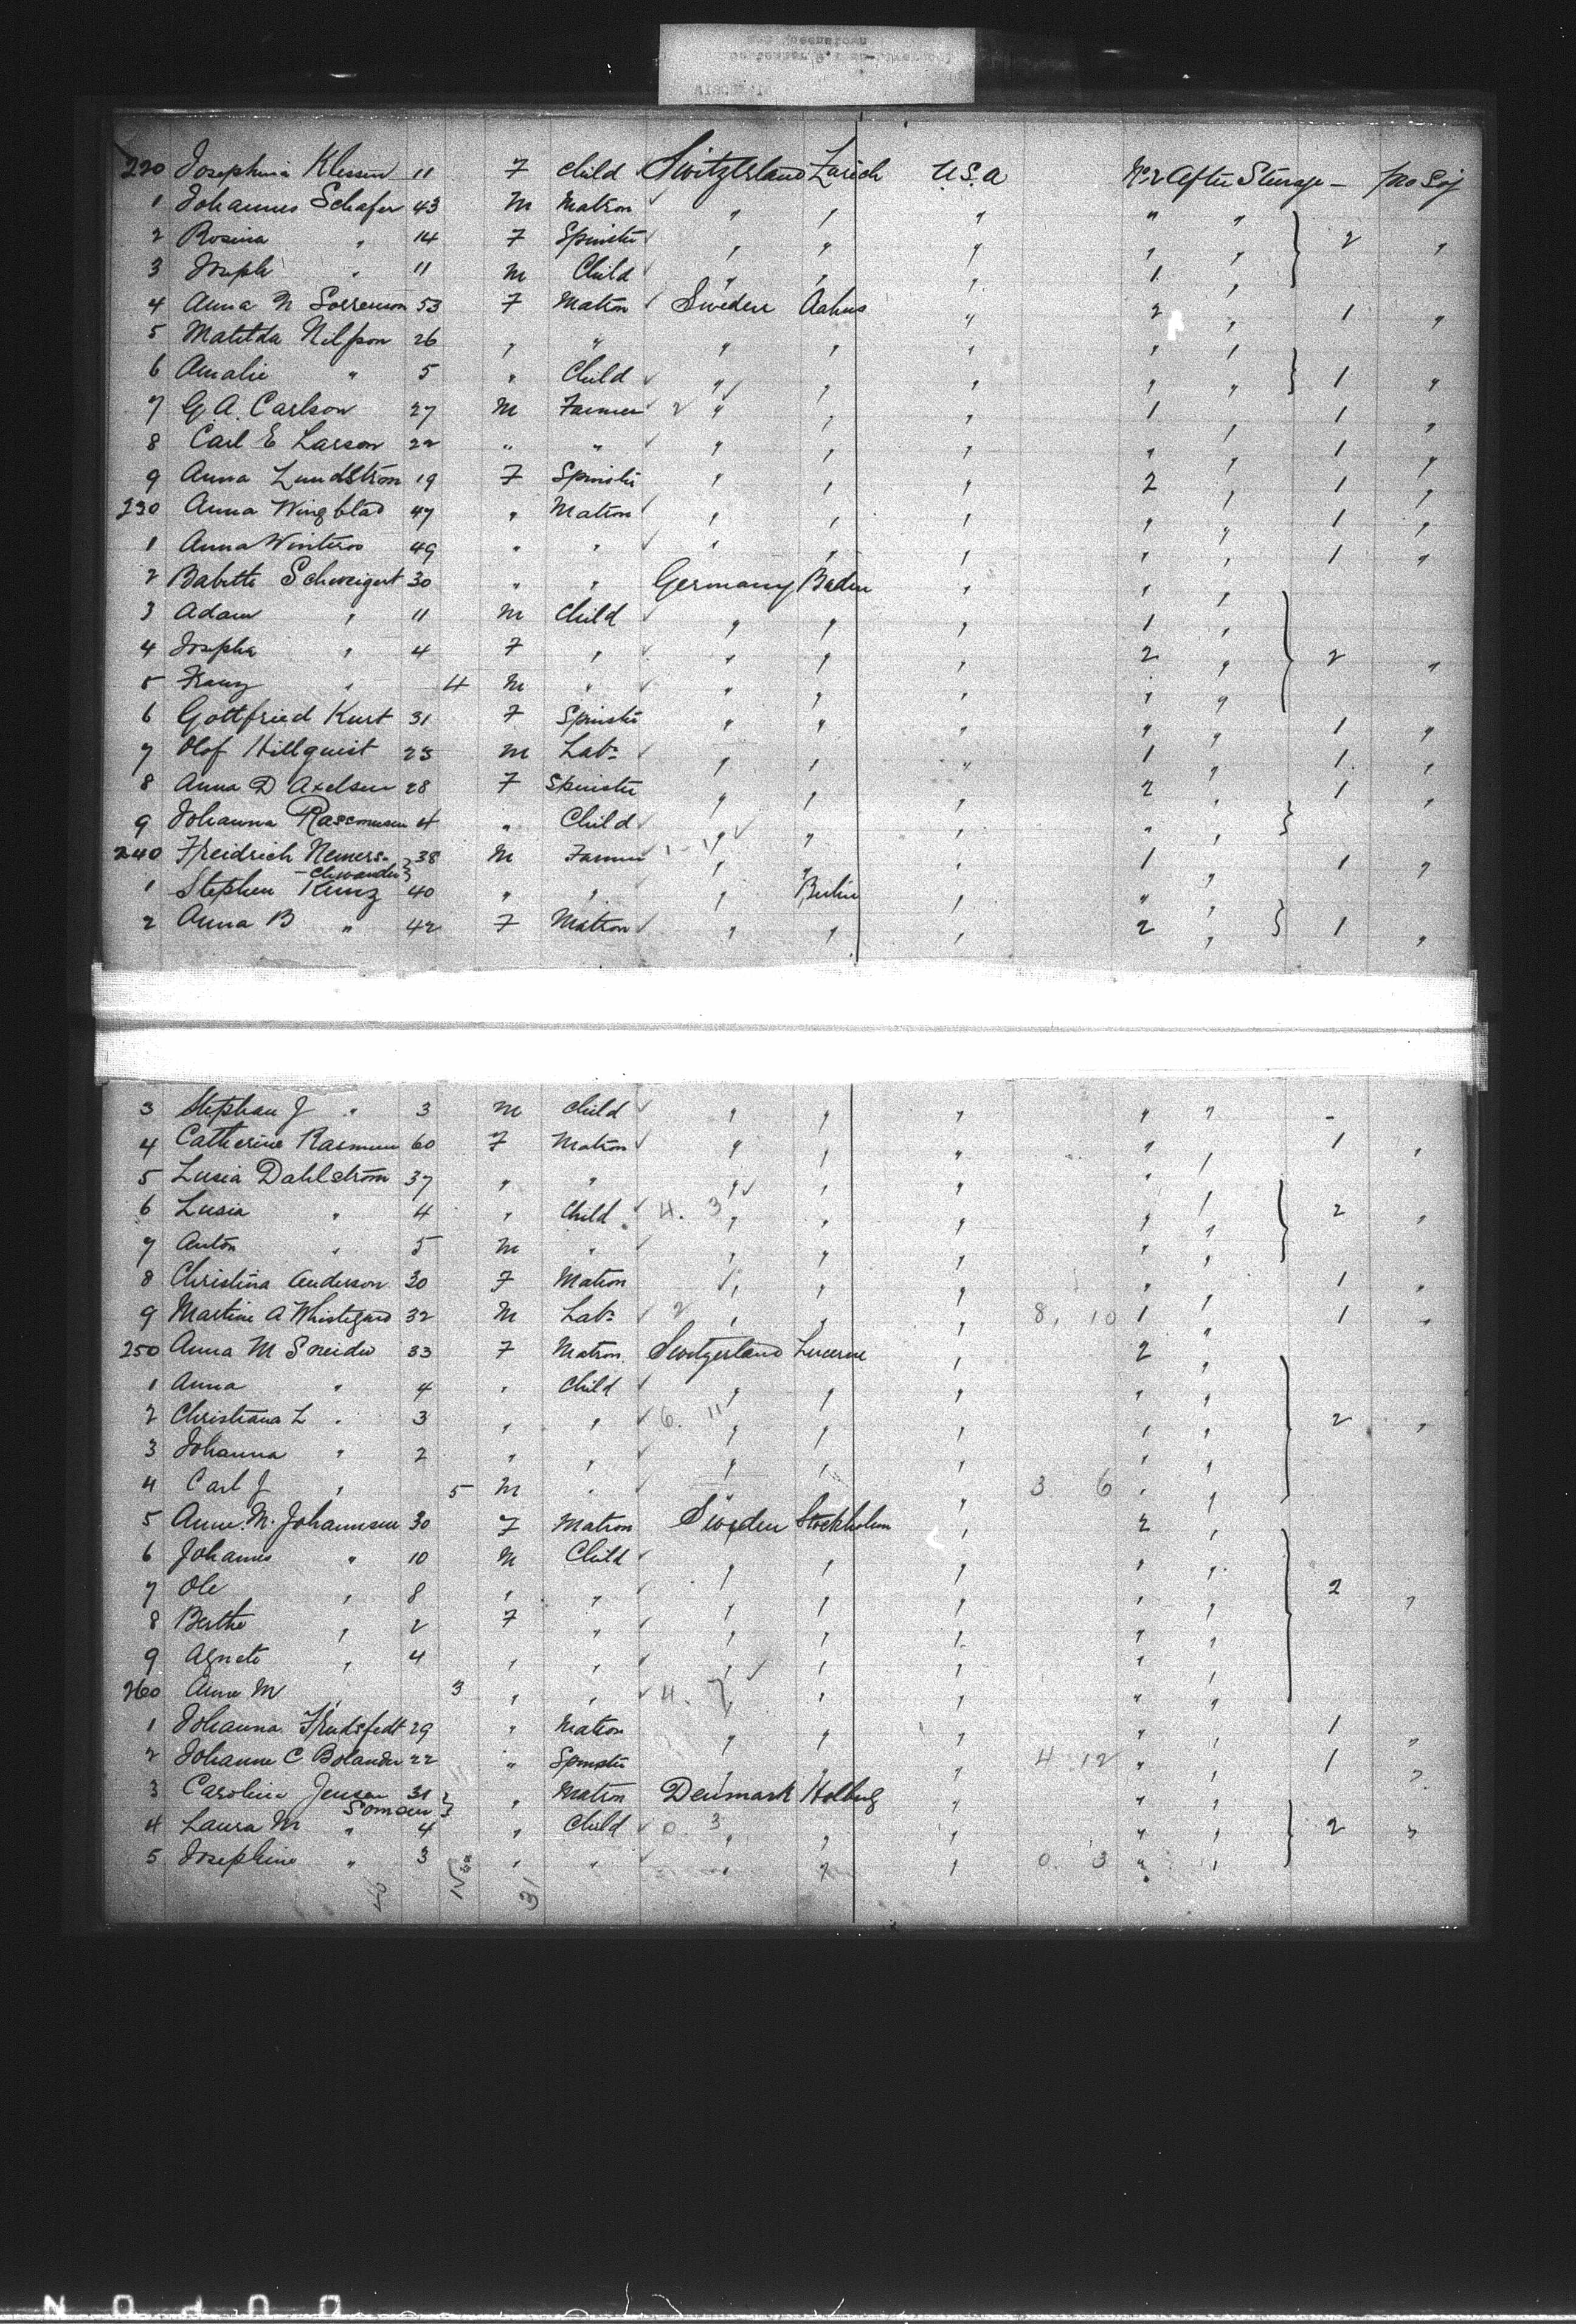 220 Josephina Klessen 11 F Child Switzerland Zurich U.S.A No 2 After Steerage -
1 Johannes Schafer 43 M Matron " " " " "
2 Rosina " 14 F Spinster " " " " " 2 "
3 Joseph " 11 M Child " " " 1 "
4 Anna N Sorrenson 53 F Matron Sweden Aahus " 2 " 1 "
5 Matilda Nilsson 26 " " " " " " "
6 Amalie " 5 " Child " " " " " 1 "
7 G. A. Carlson 27 M Farmer 2 " " " 1 " 1 "
8 Carl E Larson 22 " " " " " " " 1 "
9 Anna Lundström 19 F Spinster " " " 2 " 1 "
230 Anna Wingblad 47 " Matron " " " " " 1 "
1 Anna 49 " " " " " " " 1 "
2 Babette Schweigert 30 " " Germany Baden " " "
3 Adam " 11 M Child " " " 1 "
4 Josepha " 4 F " " " " 2 " 2 "
5 Franz " 4 M " " " " " "
6 Gottfried Kurt 31 F Spinster " " " " " 1 "
7 Olof Hillquist 23 M Labr " " " 1 " 1 "
8 Anna D Axelsen 28 F Spinster " " " 2 " 1 "
9 Johanna Rasmusen 4 " Child " " " " "
240 Freidrich Nemers- 38 M Farmer " " " 1 " 1 "
-chwander
1 Stephen Kunz 40 " " " Berlin " " "
2 Anna B " 42 F Matron " " " 2 " 1 "
3 Stephan J " 3 M Child " " " " " -
4 Catherine Rasmusen 60 F Matron " " " " " 1 "
5 Lusia Dahlström 37 " " " " " " "
6 Lusia " 4 " Child 4. 3 " " " " " 2 "
7 Anton " 5 M " " " " " "
8 Christina Anderson 30 F Matron " " " " " 1 "
9 Martine A 32 M Labr 2 " " " 8, 10 1 " 1 "
250 Anna M Sneider 33 F Matron Switzerland Lucerne " 2 "
1 Anna " 4 " Child " " " " "
2 Christiana L " 3 " " 6. 11 " " " " " 2 "
3 Johanna " 2 " " " " " " "
4 Carl J " 5 M " " " " 3 6 " "
5 Anne. M. Johannsen 30 F Matron Sweden Stockholm " 2 "
6 Johannes " 10 M Child " " " " "
7 Ole " 8 " " " " " " " 2 "
8 Berthe " 2 F " " " " " "
9 Agnete " 4 " " " " " " "
260 Anne M " 3 " " 4. 7 " " " " "
1 Johanna 29 " Matron " " " " " 1 "
2 Johanne C. Bolander 22 " Spinster " " " 4 12 " " 1 "
3 Carolina Jensen 31 " Matron Denmark Holberg " " "
4 Laura M " 4 " Child 0. 3 " " " " " 2 "
5 Josephine " 3 " " " " " 0. 3 " "
31